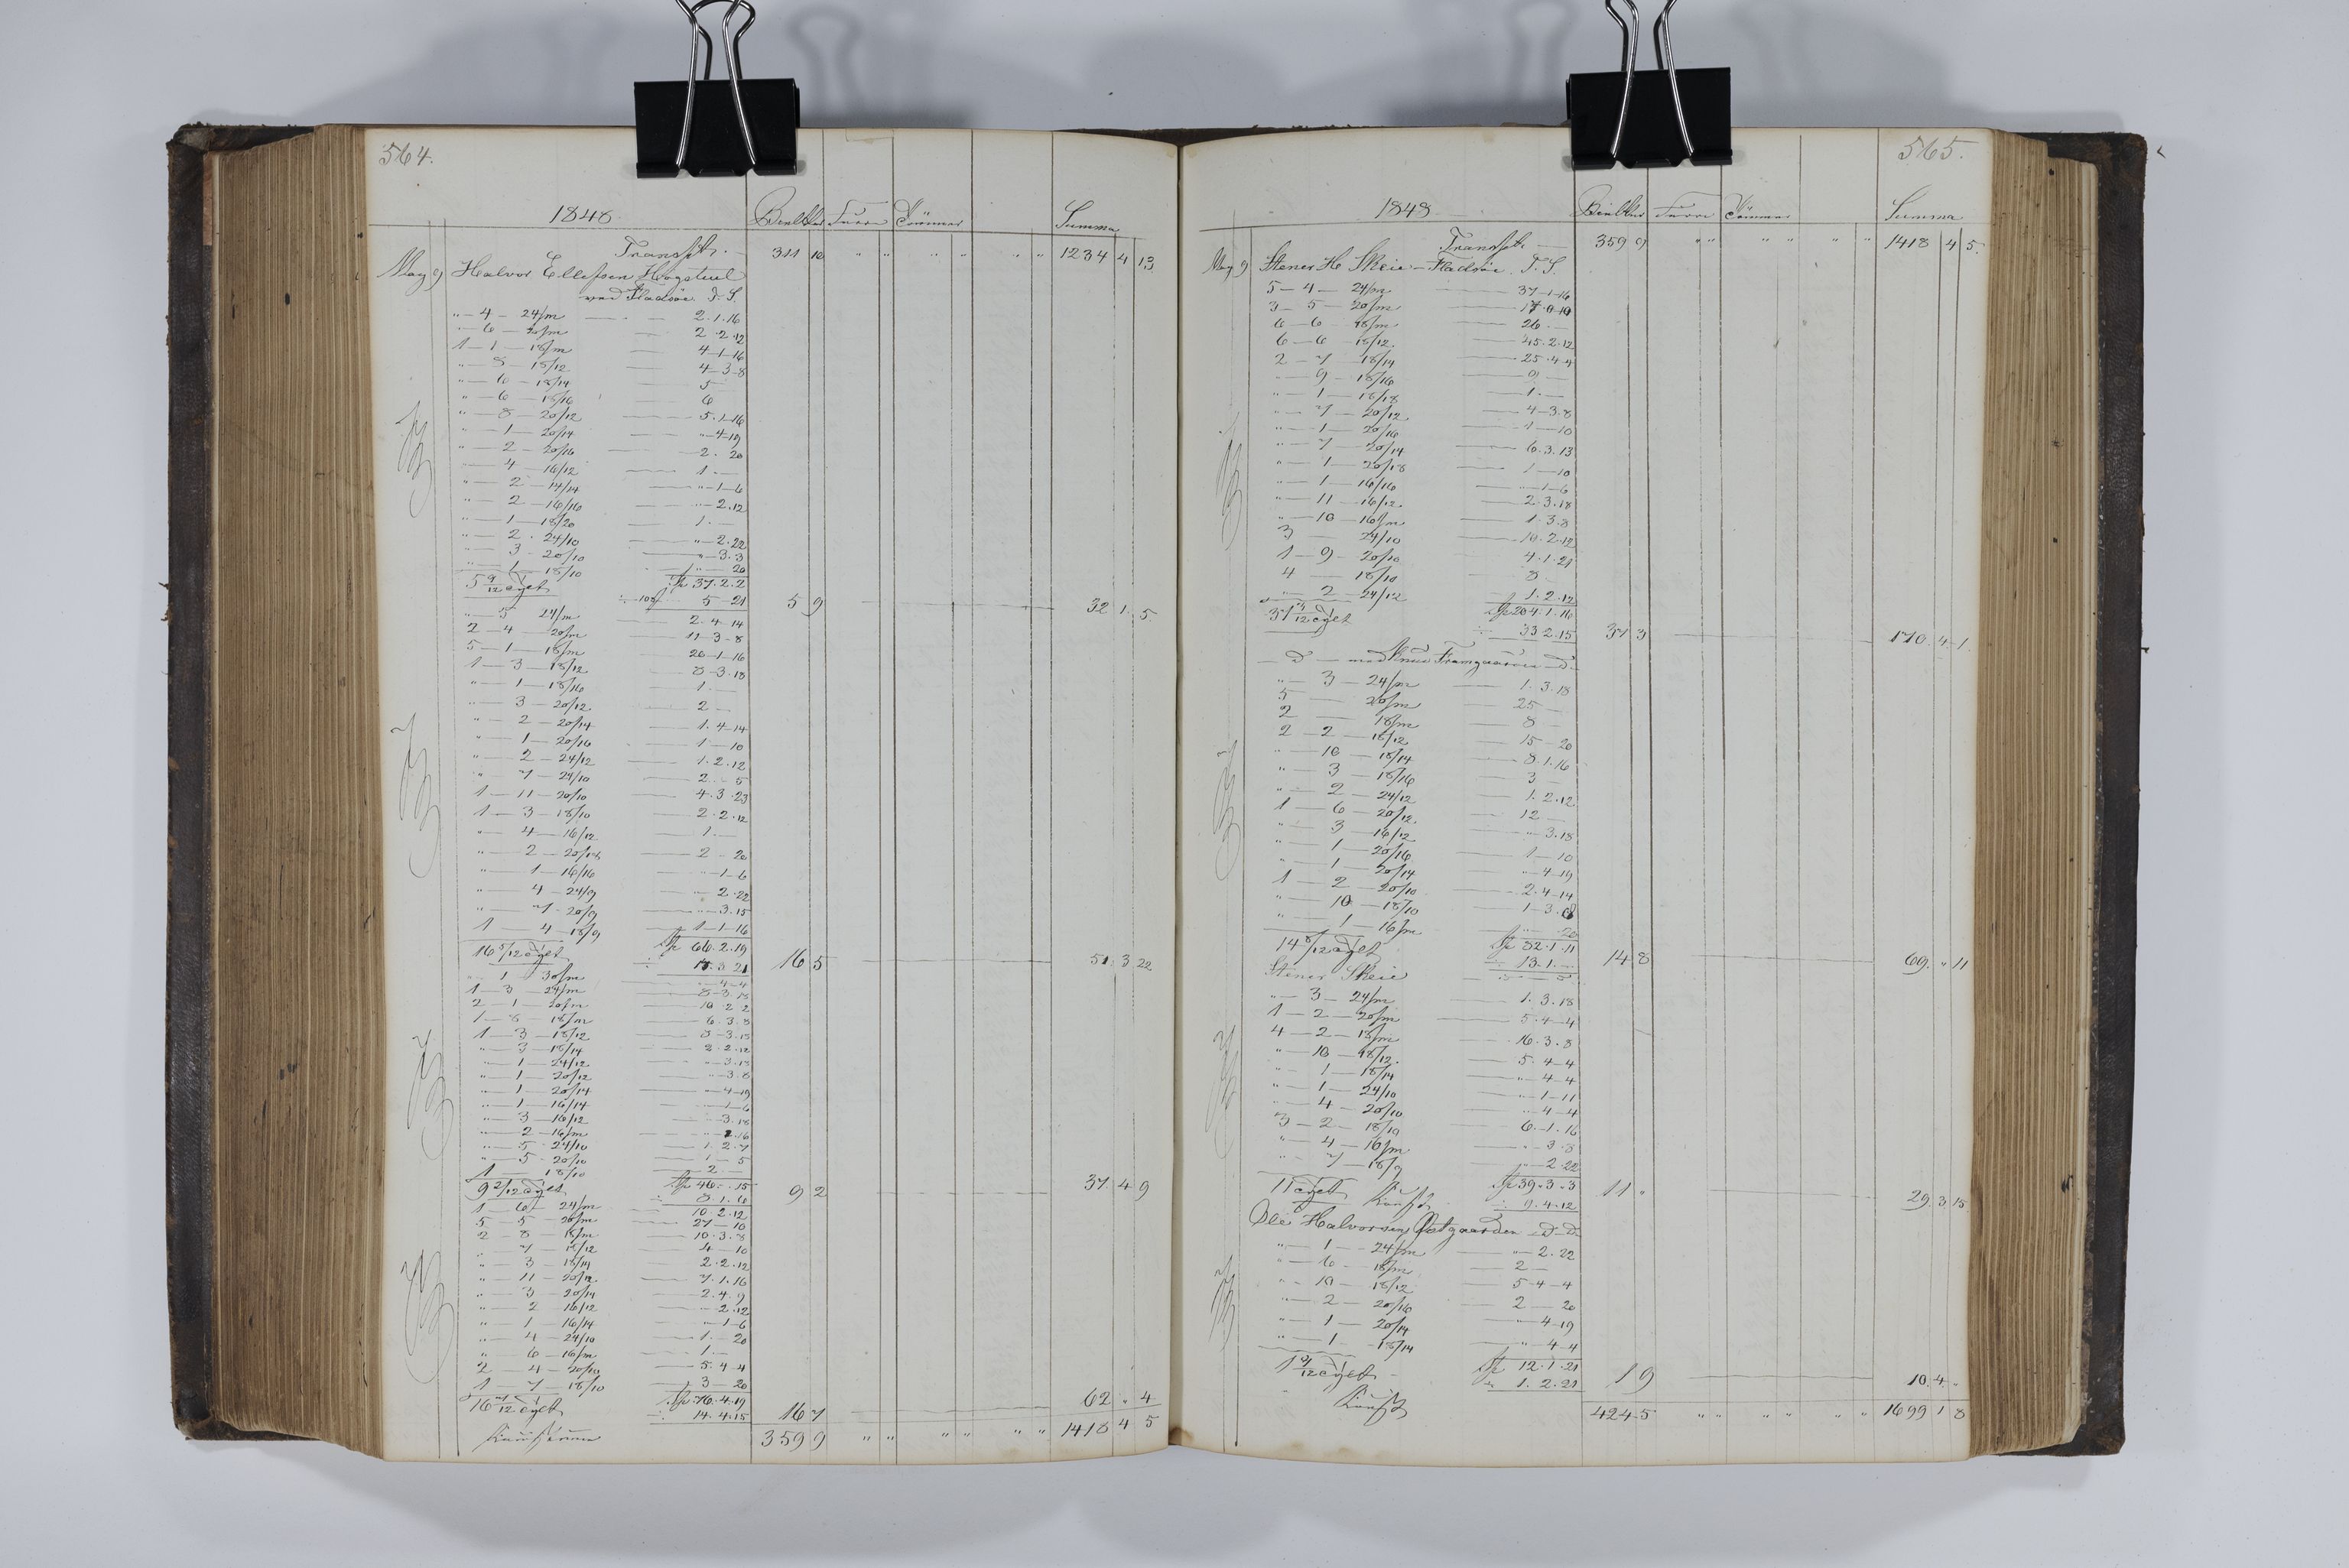 564.
1848. Summa
Transpt. — 311 10 " " " " " " 1234 4 13
May 9 Halvor Ellefsen Høgstuul
ved Fladsøe T. S.
" — 4 — 24/m — 2. 1. 16
" — 6 — 20/m 2. 2. 12
1 — 1 — 18/m — 4 — 1 — 16
" — 8 — 18/12 — 4 — 3 — 8
" — 6 — 18/14 — 5
" — 6 — 18/16 — 6
" — 8 — 20/12 — 5. 1 — 16
" — 1 — 20/14 — " — 4 — 19
" — 2 — 20/16 — 2. 20
" — 4 — 16/12 — 1. —
" — 2 — 14/14 — " — 1 — 6
" — 2 — 16/16 — " — 2. 12
" — 1 — 18/20 — 1. —
" — 2 — 24/10 — " — 2. 22
" — 3 — 20/10 — " — 3. 3
" — 1 — 18/10 — " — 20
5 9/12 37. 2. 2
÷ 5 — 21 5 9 — 32 1. 5
" — 5 24/m — 2. 4. 14
2 — 4 — 20/m 11 — 3 — 8
5 — 1 — 18/m — 20 — 1 — 16
1 — 3 — 18/12 — 8 — 3. 18
" — 1 — 18/16 — 1. —
" — 3 — 20/12 — 2 —
" — 2 — 20/14 — 1. 4 — 14
" — 1 — 20/16 — 1 — 10
" — 2 — 24/12 — 1. 2. 12
" — 7 — 24/10 — 2. 5
1 — 11 — 20/10 — 4. 3. 23
1 — 3 — 18/10 — 2. 2. 12
" — 4 — 16/12 — 1. —
" — 2 — 20/18 — 2 — 20
" — 1 — 16/16 — " — 1 — 6
" — 4 — 24/9 — " 2. 22
" — 7 — 20/9 — " — 3. 15
1 — 4 — 18/9 — 1 — 1 — 16
16 5/12 66. 2. 19
÷ 3 21 16 5 — 51. 3 22
" — 1 — 30/m — " — 4 — 4
1 — 3 — 24/m — 8 — 3. 18
2 — 1 — 20/m — 10. 2. 2
1 — 8 — 18/m — 6. 3. 8
1 — 3 — 18/12 — 8 — 3. 18
" — 3 — 18/14 — 2. 2. 12
" — 1 — 24/12 — " — 3. 18
" — 1 — 20/12 — " — 3. 8
" — 1 — 20/14 — " — 4 — 19
" — 1 — 16/14 — " — 1 — 6
" — 3 — 16/12 — " 3. 18
" — 2 — 16/m — " — 16
" — 5 — 24/10 — 1. 2. 7
" — 5 — 20/10 — 1 — 5
1 — 18/10 — 2
9 2/12 46. — 15
÷ 8. 1. 6 9 2 — 37. 4 9
1 — 6 — 24/m — 10. 2. 12
5 — 5 — 20/m — 27 — 10
2 — 8 — 18/m — 10. 3. 8
" — 7 — 18/12 — 4 — 10
" — 3 — 18/14 — 2. 2. 12
" — 11 — 20/12 — 7. 1. 16
" — 3 — 20/14 — 2. 4. 9
" — 2 — 16/12 — " — 2. 12
" — 1 — 16/14 — " — 1 — 6
" — 4 — 24/10 — 1. — 20
" — 6 — 16/m — 1. —
2 — 4 — 20/10 — 5. 4 — 4
1 — 7 — 18/10 — 3 — 20
16 7/12 76. 4. 19
÷ 14. 4. 15 16 7 — 62 " 4
359 9 " " " " " " 1418 4 5
565.
1848. Summa
Transpt. — 359 9 " " " " " " 1418 4 5.
May 9 Stener H. Skeie — Fladsøe T. S.
5 — 4 — 24/m — 37 — 1 — 16
3 — 5 — 20/m — 17. 0. 10
6 — 6 — 18/m — 26. —
6 — 6 18/12 — 45. 2. 12
2 — 7 — 18/14 — 25. 4 — 4
" — 9 — 18/16 — 9 —
" — 1 — 18/18 — 1. —
" — 7 — 20/12 — 4 — 3. 8
" — 1 — 20/16 — 1 — 10
" — 7 — 20/14 — 6. 3. 13
" — 1 — 20/18 — 1 — 10
" — 1 — 16/16 — " — 1 — 6
" — 11 — 16/12 — 2. 3. 18
" — 10 — 16/m — 1. 3. 8
3 — 24/10 — 10. 2. 12
1 — 9 — 20/10 4. 1. 21
4 — 18/10 — 8
" — 2 — 24/12 — 1. 2. 12
37 3/12 204. 1. 16
÷ 33 2. 15 37 3 — 170. 4 — 1.
— D — med Knud Framgaarden — D —
" — 3 — 24/m — 1. 3. 18
5 — 20/m — 25 —
2 — 18/m — 8
2 — 2 — 18/12 — 15 — 20
" — 10 — 18/14 — 8. 1. 16
" — 3 — 18/16 — 3 —
" — 2 — 24/12 — 1. 2. 12
1 — 6 — 20/12 — 12 —
" — 3 — 16/12 — " — 3. 18
" — 1 — 20/16 — 1 — 10
" — 1 — 20/14 — " — 4 — 19
1 — 2 — 20/10 — 2. 4 — 14
" — 10 — 18/10 — 1 — 3. 8
" — 1 — 16/m — " 20
14 8/12 82. 1. 11
÷ 13. 1. — 14 8 — 69. " 11
Stener Skeie
" — 3 — 24/m — 1. 3. 18
1 — 2 — 20/m — 5. 4 — 4
4 — 2 — 18/m — 16. 3. 8
" — 10 — 18/12 — 5. 4 — 4
" — 1 — 18/14 — " — 4 — 4
" — 1 — 24/10 — " — 1 — 11
" — 4 — 20/10 — " 4 — 4
3 — 2 — 18/10 — 6. 1. 16
" — 4 — 16/m — " — 3. 8
" — 7 — 18/9 — " — 2. 22
11 39. 3. 3
÷ 9. 4. 12 11 " — 29. 3 15
Ole Halvorsen Østgaarden — D — D
" — 1 — 24/m — " — 2. 22
" — 6 — 18/m — 2 —
" — 10 — 18/12 — 5. 4 — 4
" — 2 — 20/16 — 2 — 20
" — 1 — 20/14 — " 4 — 19
" — 1 — 18/14 — " 4 — 4
1 9/12 12. 1. 21
÷ 1. 2. 21 1 9 — 10. 4. "
424 5 " " " " " " 1699 1 8